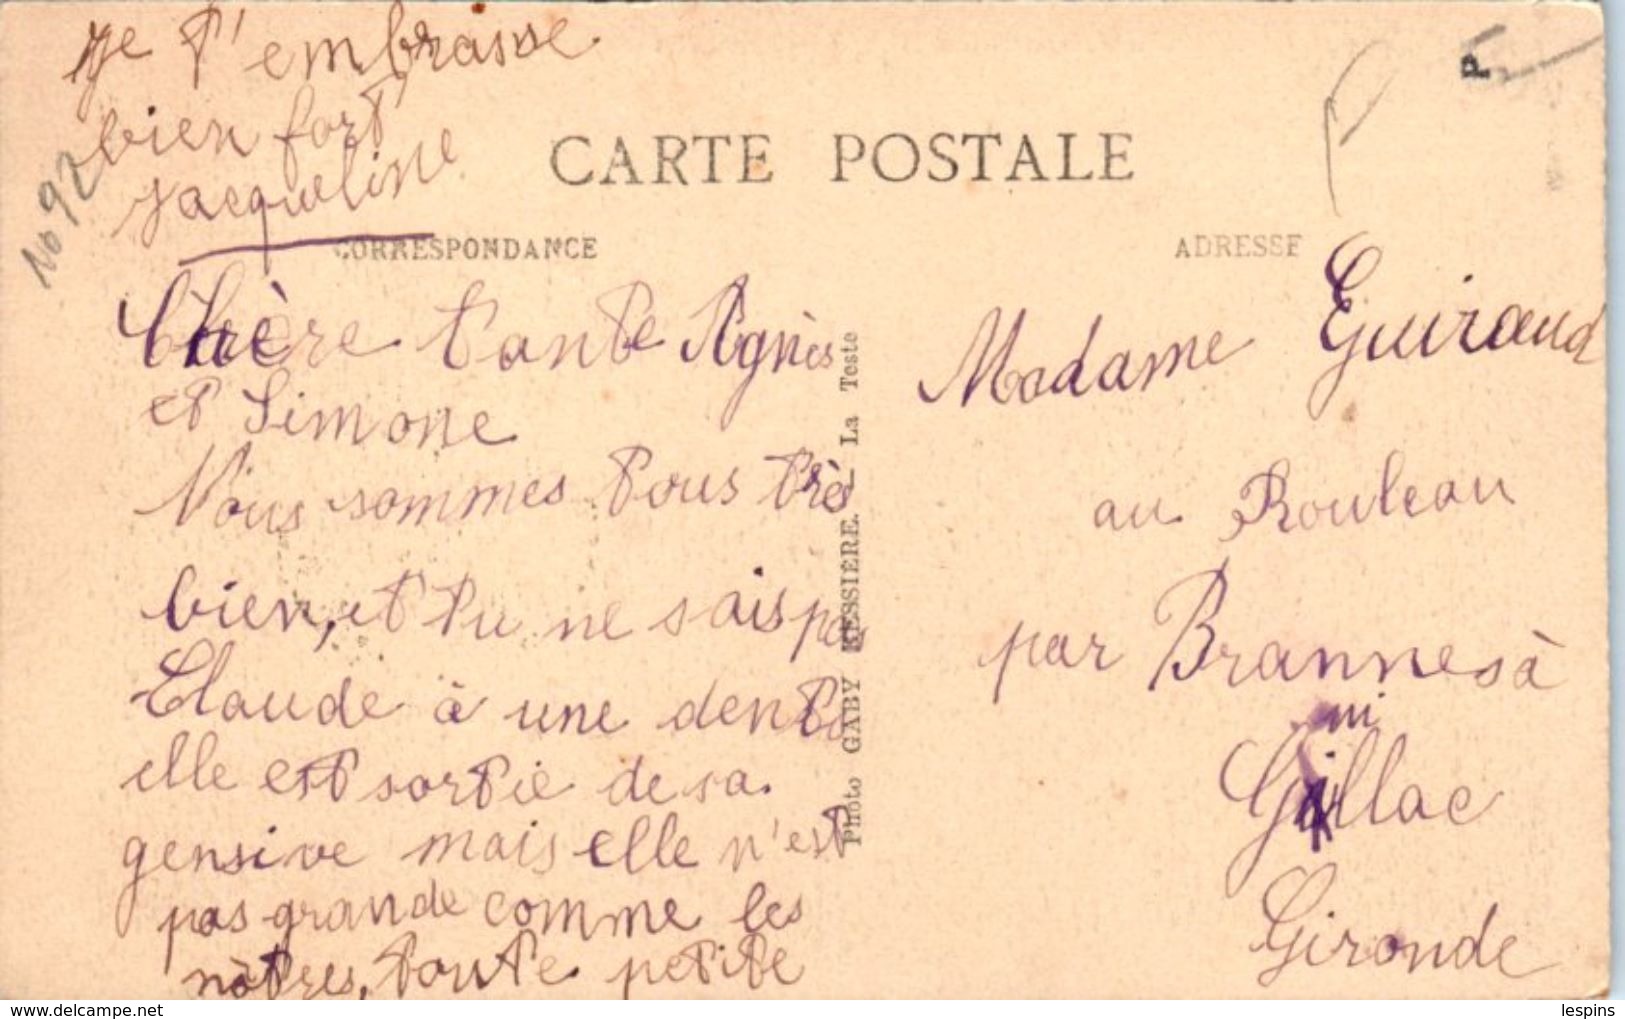 Je t'embrasse
bien fort
Jacqueline
No 92
CARTE POSTALE
CORRESPONDANCE
ADRESSE
Chère tante Agnès
et Simone
Nous sommes tous très
bien, et tu ne sais pas
Claude à une dent
elle est sortie de sa
gensive mais elle n'est
pas grande comme les
nôtres, toute petite
Photo GABY BESSIÈRE. — La Teste
Madame Guiraud
au Rouleau
par Brannes à
Guillac
Gironde
P
https://www.delcampe.net
lespins